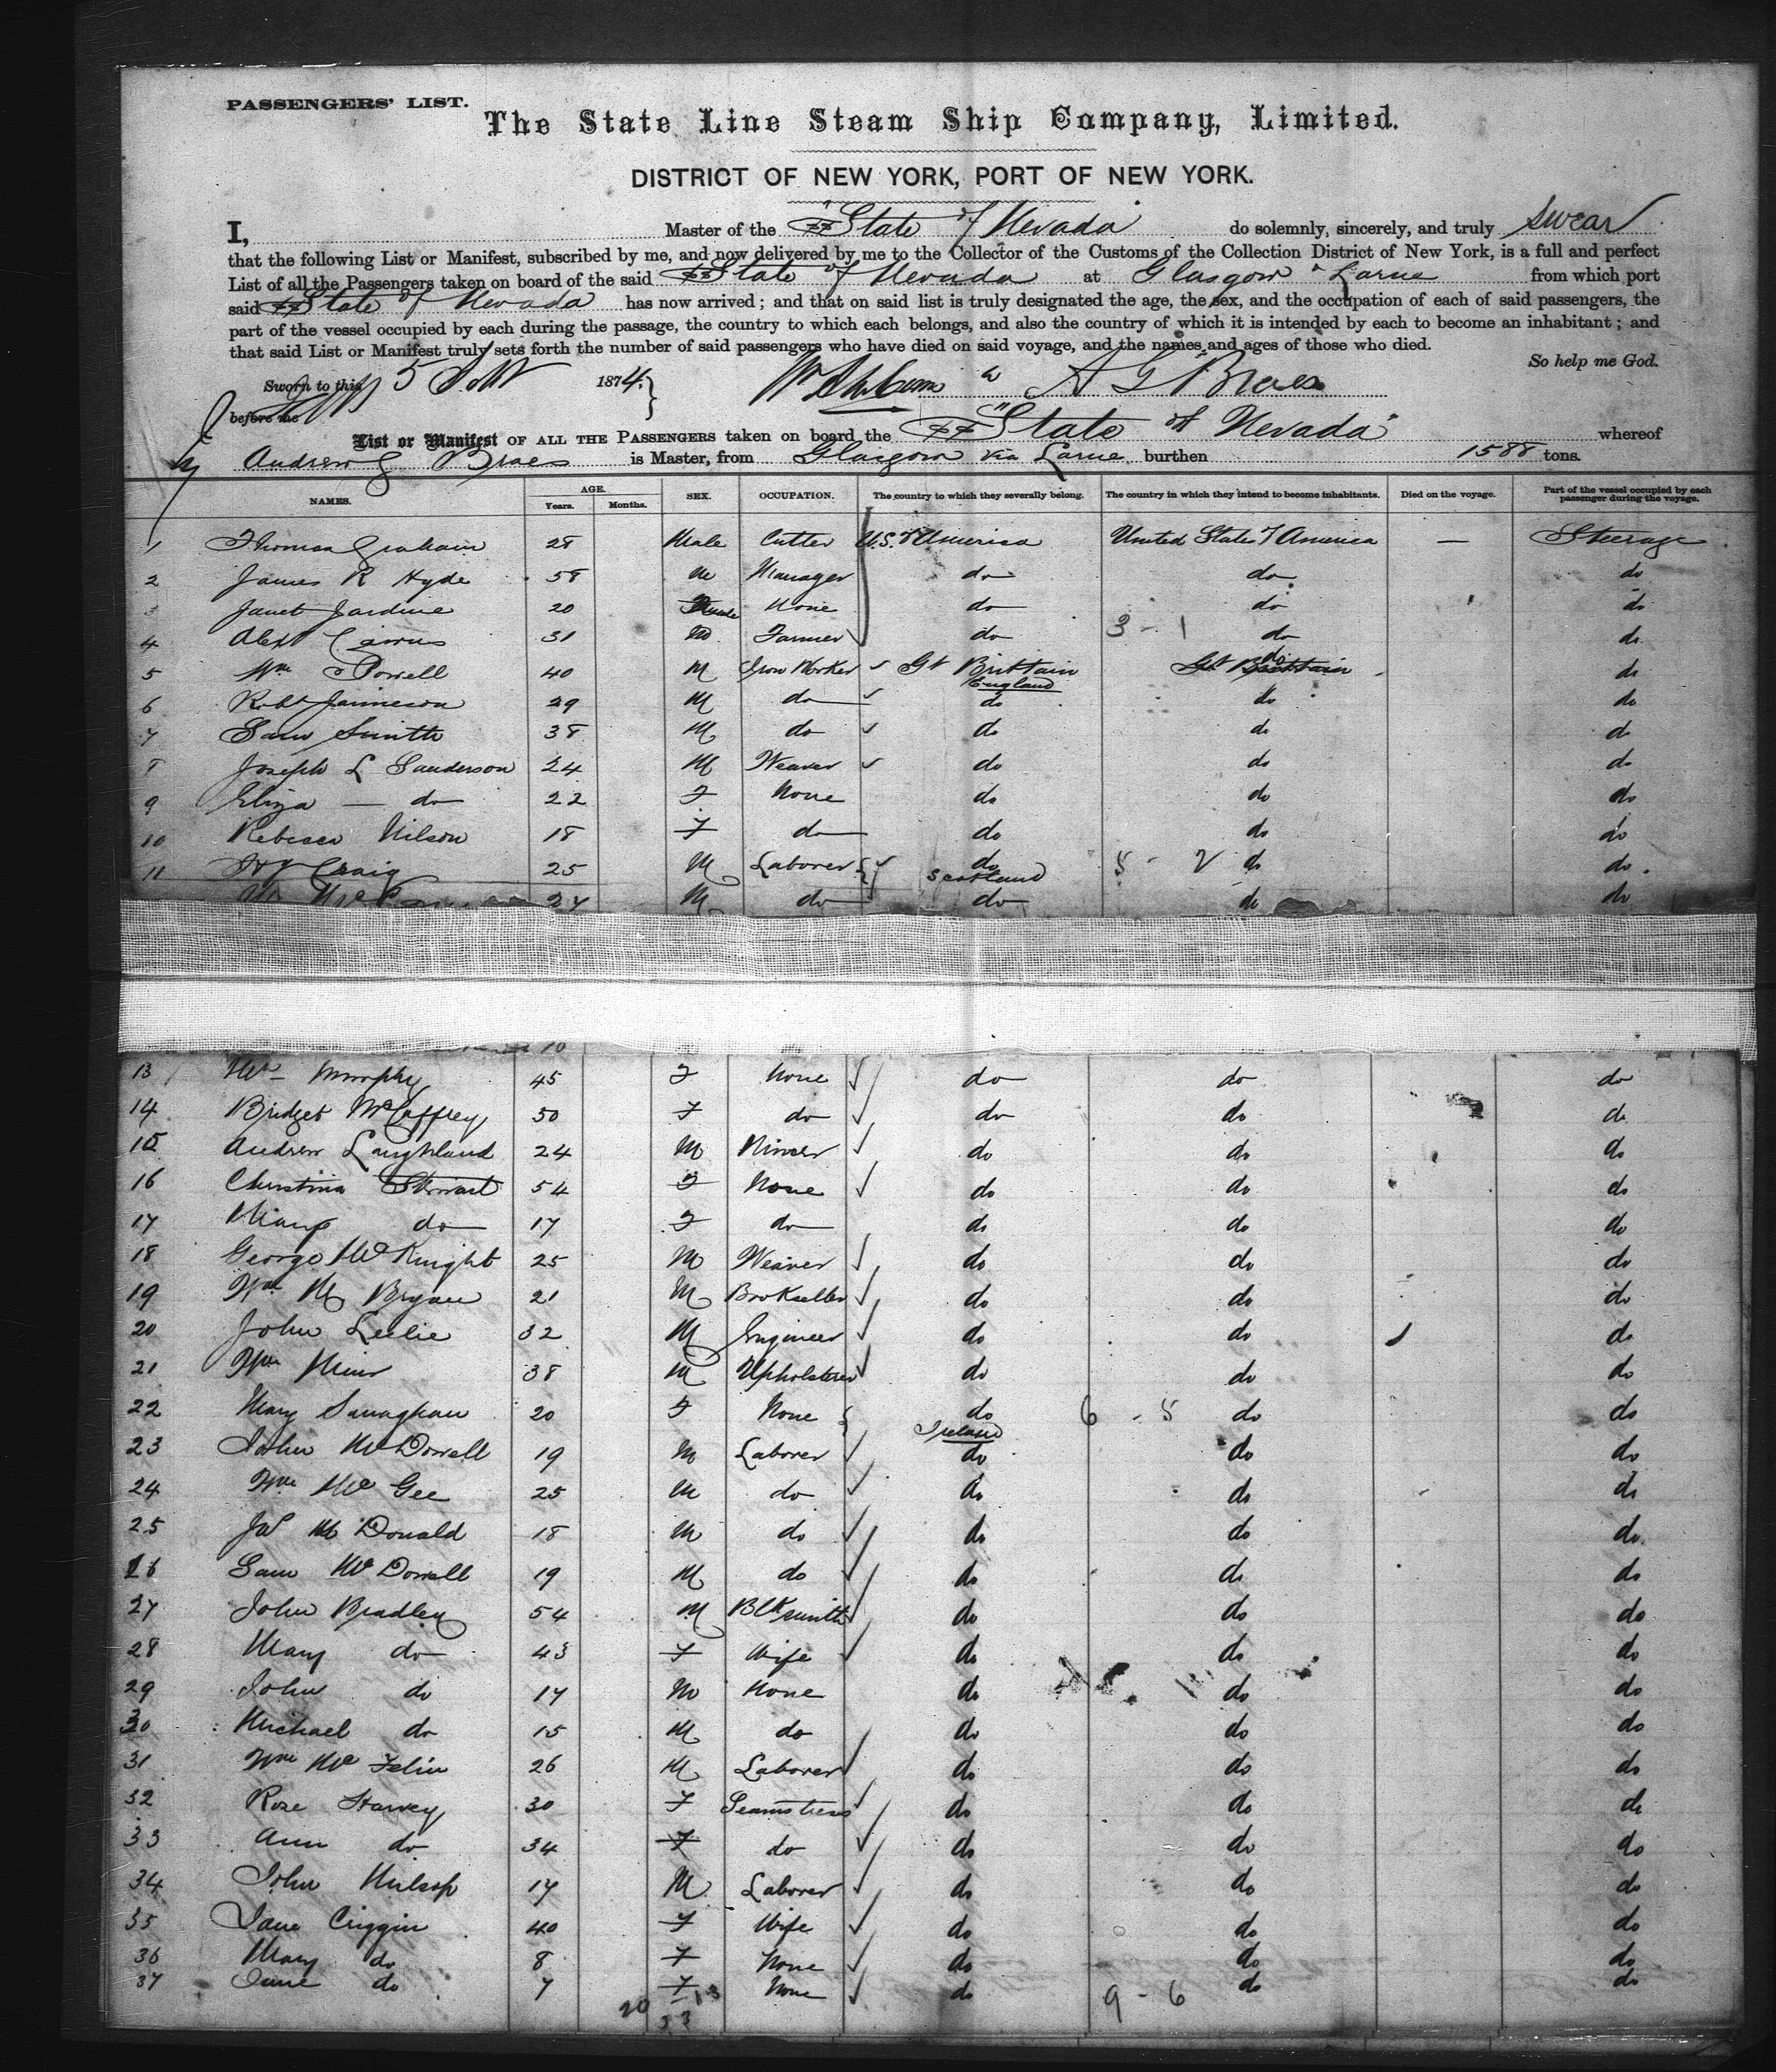 PASSENGERS' LIST.
The State Line Steam Ship Company, Limited.
DISTRICT OF NEW YORK, PORT OF NEW YORK.
I, Master of the SS "State of Nevada" do solemnly, sincerely, and truly swear
that the following List or Manifest, subscribed by me, and now delivered by me to the Collector of the Customs of the Collection District of New York, is a full and perfect
List of all the Passengers taken on board of the said SS State of Nevada at Glasgow & Larne from which port
said SS State of Nevada has now arrived; and that on said list is truly designated the age, the sex, and the occupation of each of said passengers, the
part of the vessel occupied by each during the passage, the country to which each belongs, and also the country of which it is intended by each to become an inhabitant; and
that said List or Manifest truly sets forth the number of said passengers who have died on said voyage, and the names and ages of those who died.
So help me God.
Sworn to this 5 1874 A G Braes
before me
List or Manifest OF ALL THE PASSENGERS taken on board the SS "State of Nevada" whereof
Andrew G Braes is Master, from Glasgow via Larne burthen 1588 tons.
NAMES. AGE. Years. Months. SEX. OCCUPATION. The country to which they severally belong. The country in which they intend to become inhabitants. Died on the voyage. Part of the vessel occupied by each passenger during the voyage.
1 Thomas Graham 28 Male Cutter U.S. of America United States of America — Steerage
2 James R Hyde 58 M Manager do do do
3 Janet Jardine 20 Female None do do do
4 Alexr Cairns 31 M Farmer do 3 - 1 do do
5 Wm Powell 40 M Iron Worker Gt Brittain England Gt Brittain do do
6 Robt Jamieson 29 M do do do do
7 Sam Smith 38 M do do do do
8 Joseph L Sanderson 24 M Weaver do do do
9 Eliza — do 22 F None do do do
10 Rebecca Nilson 18 F do do do do
11 Craig 25 M Laborer do Scotland 5 - 2 do do
24 M do do do do
13 Murphy 45 F None do do do
14 Bridget McCaffrey 50 F do do do do
15 Andrew Laughland 24 M Miner do do do
16 Christina Stewart 54 F None do do do
17 do 17 F do do do do
18 George McKnight 25 M Weaver do do do
19 Wm M Bryan 21 M Bookseller do do do
20 John Leslie 32 M Engineer do do do
21 Wm Muir 38 M Upholsterer do do do
22 Mary 20 F None do 6 - 5 do do
23 John McDowell 19 M Laborer Ireland do do do
24 Wm McGee 25 M do do do do
25 Jas McDonald 18 M do do do do
26 Sam McDowell 19 M do do do do
27 John Bradley 54 M Blksmith do do do
28 Mary do 43 F Wife do do do
29 John do 17 M None do do do
30 Michael do 15 M do do do do
31 Wm Mc 26 M Laborer do do do
32 Rose Harvey 30 F Seamstress do do do
33 Ann do 34 F do do do do
34 John Hislop 17 M Laborer do do do
35 Jane Criggin 40 F Wife do do do
36 Mary do 8 F None do do do
37 Jane do 7 F None do 9 - 6 do do
20 13
33